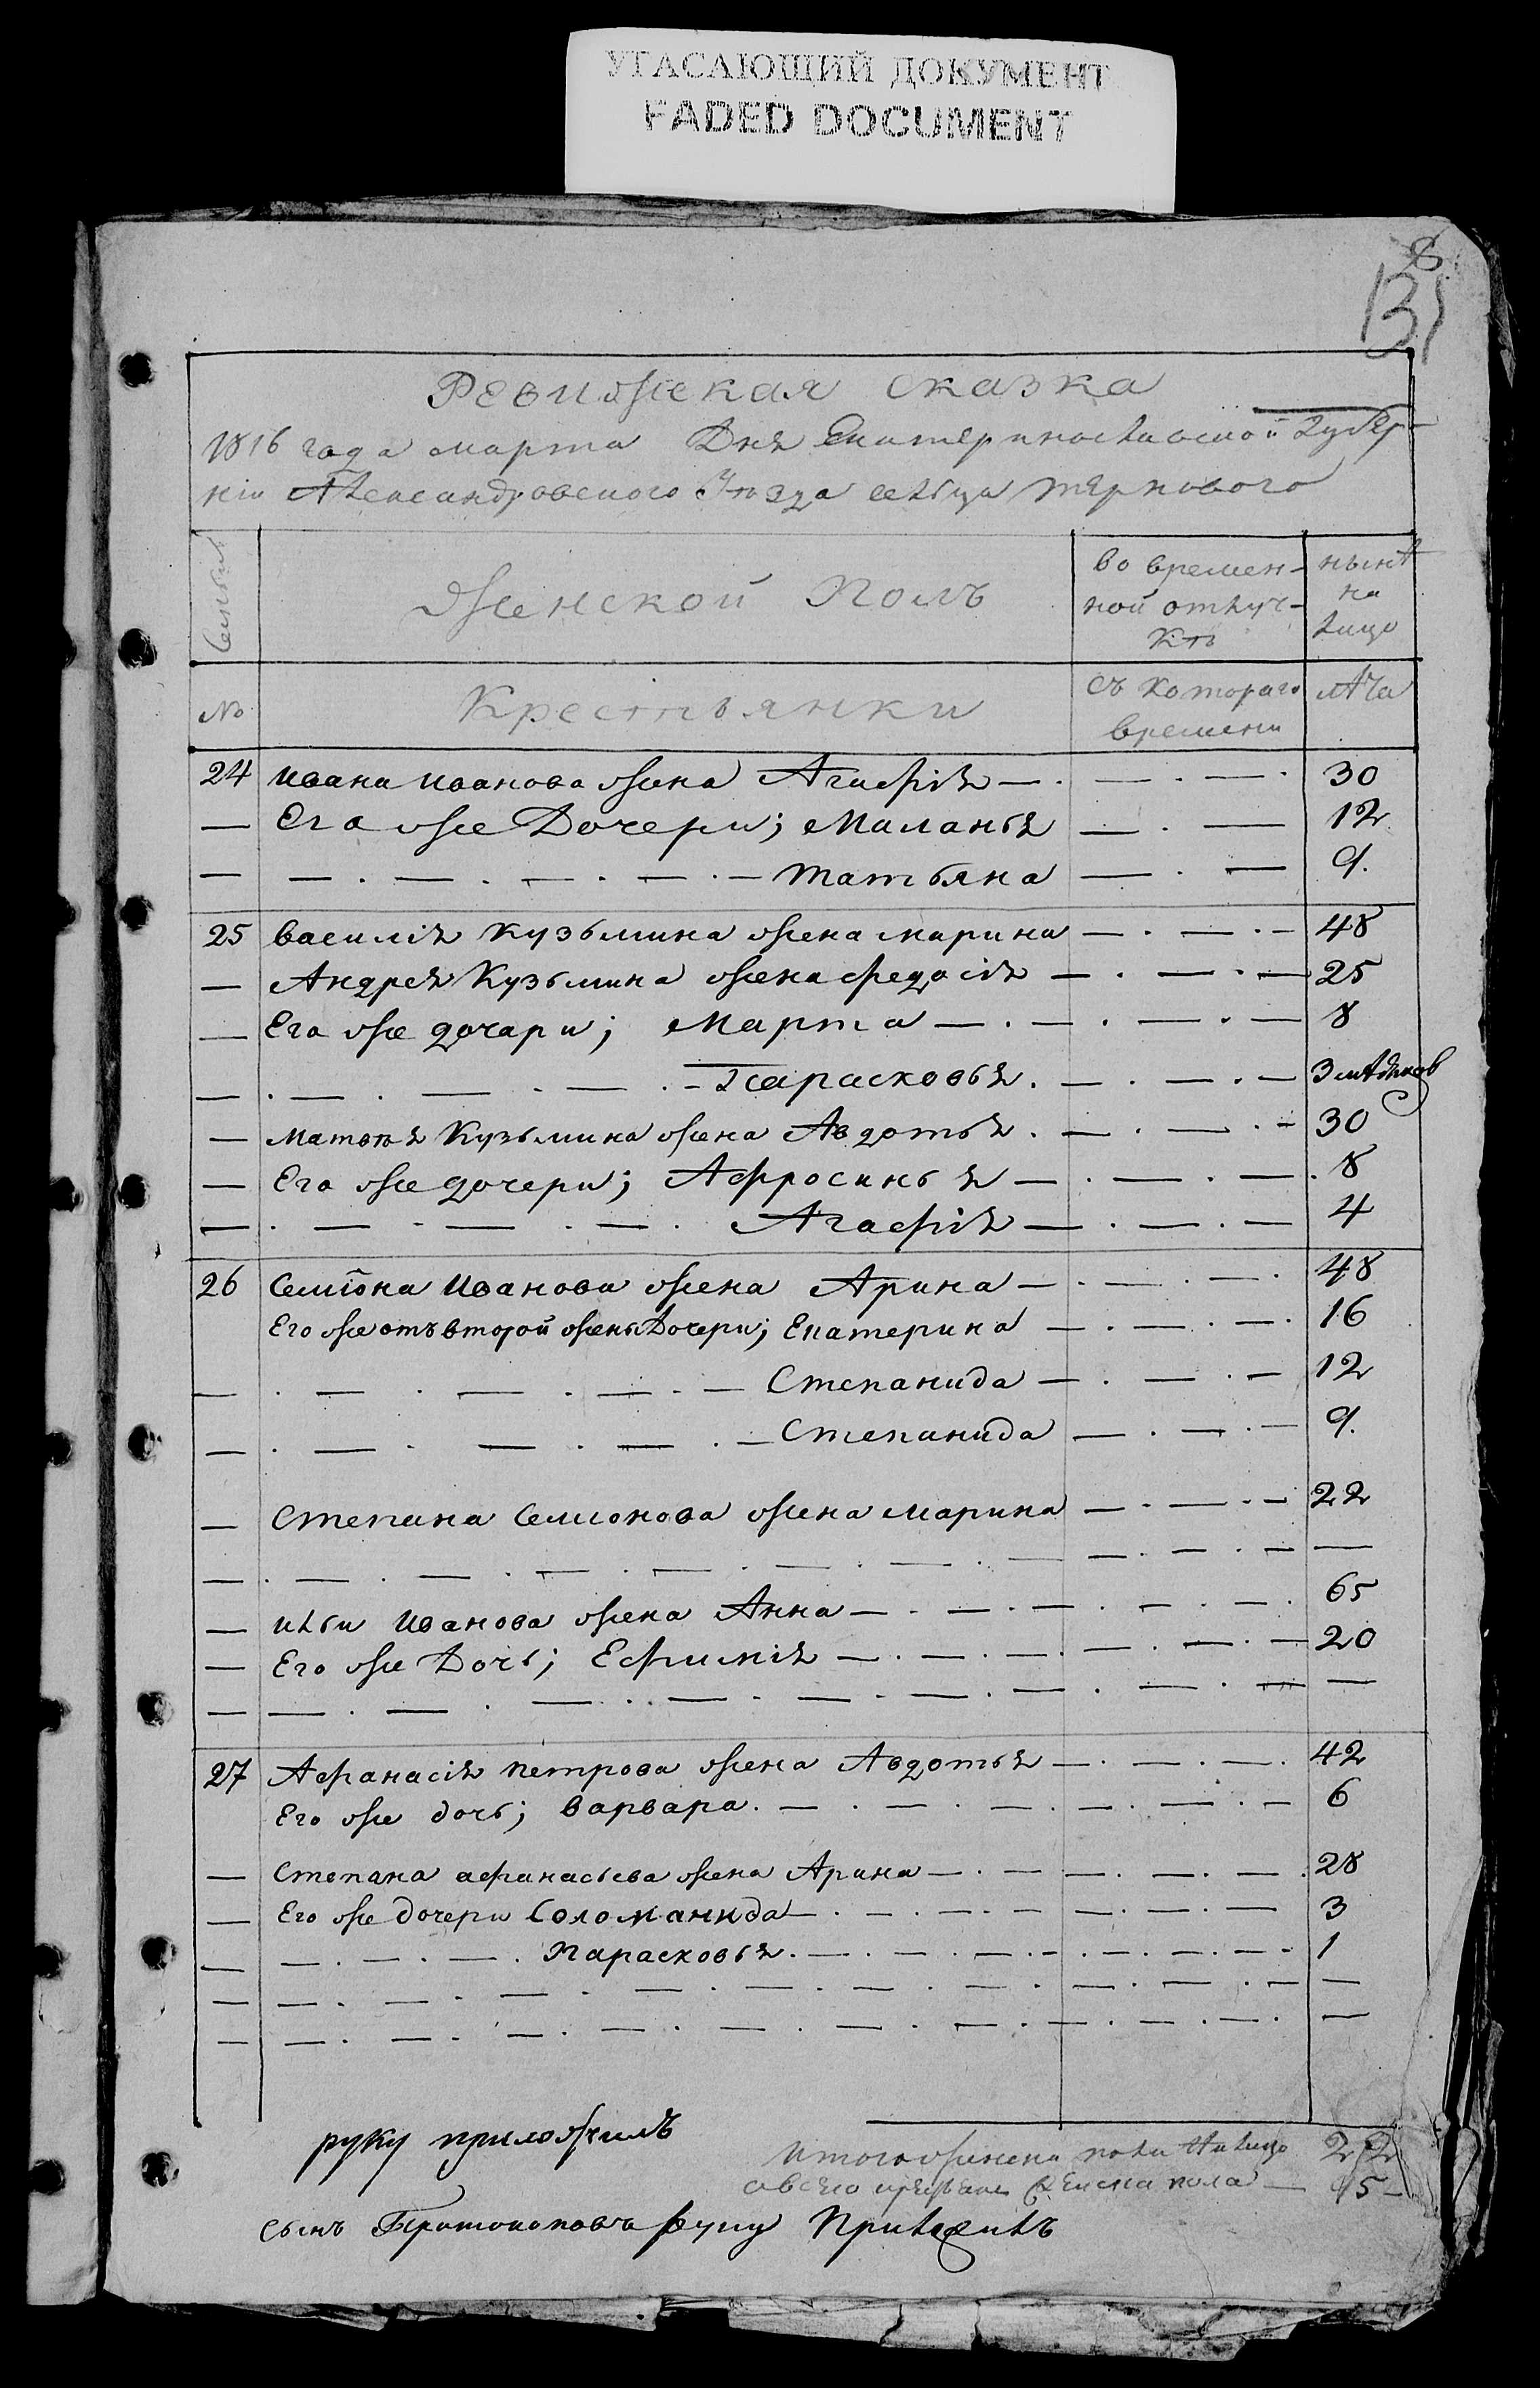 УГАСАЮЩИЙ ДОКУМЕНТ
FADED DOCUMENT
8
131
Ревижская сказка
1816 года марта Дня Екатеринославской губер-
нiи Александровского Уѣзда сельца тернового
Семьи
Женской Полъ
во времен-
ной отлуч-
кѣ
нынѣ
на
лицо
№
Крестьянки
съ котораго
времени
лѣта
24 ивана иванова жена Агафiя — . — . — . 30
— Его же Дочери; Маланья — . — 12
— — . — . — . — . — татьяна — . — 9.
25 василiя кузьмина жена марина — . — . — 48
— Андрея Кузьмина жена федосiя — . — . — 25
— Его же дочари; Марта — . — . — . — 8
— . — . — . — . — Парасковья . — . — . — 3 мѣсяцов
— матвѣя Кузьмина жена Авдотья . — . — . — 30
— Его же дочери; Афросинья — . — . — . 8
— . — . — . — . Агафiя — . — . — 4
26 Семiона Иванова жена Арина — . — . — . 48
Его же отъ второй жены Дочери; Екатерина — . — . — . 16
— . — . — . — . — Степанида — . — . — 12
— . — . — . — . — Степанида — . — . — 9.
— Степана Семионова жена марина — . — . — 22
— . — . — . — . — . — . — — . — . — —
— ильи Иванова жена Анна — . — . — . — . — . 65
— Его же Дочь; Ефимiя — . — . — . — . — . — 20
— — . — . — . — . — . — . — . — . — —
27 Афанасiя петрова жена Авдотья — . — . — . 42
Его же дочь; варвара . — . — . — . — . — . — 6
— Степана афанасьева жена Арина — . — — . — . — . 28
— Его же дочери Соломанида — . — . — . — . — . — 3
— — . — . — . Парасковья . — . — . — . — . — . — 1
— — . — . — . — . — . — . — . — . — —
— — . — . — . — . — . — . — . — . — . —
руку приложилъ
итого женска пола на лицо 22
а всего женска пола — 95 —
сынъ Протопоповъ руку Приложилъ